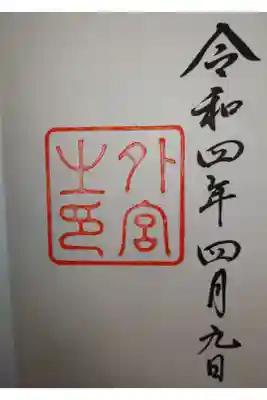 令和四年四月九日
外宮
之印